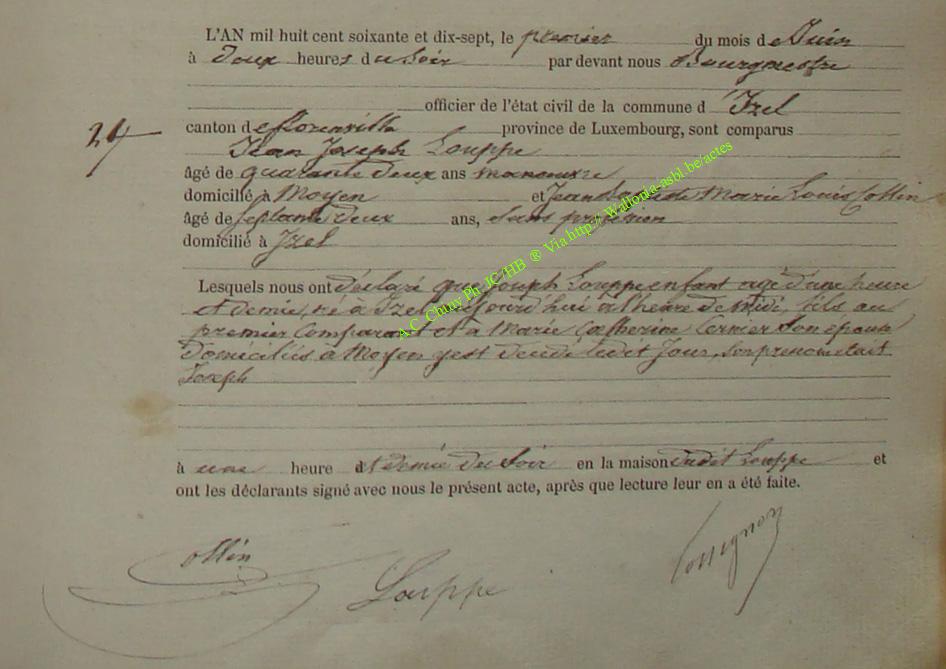 L'AN mil huit cent soixante et dix-sept, le premier du mois de Juin
à deux heures du Soir par devant nous Bourgmestre
officier de l'état civil de la commune d'Izel
24
canton de florenville province de Luxembourg, sont comparus
Jean Joseph Louppe
âgé de quarante deux ans manoeuvre
domicilié à Moyen et Jean Marie Louis Collin
âgé de septante deux ans, Sans profession
domicilié à Izel
Lesquels nous ont déclaré que Joseph Louppe enfant agé d'une heure
et demie, né à Izel aujourd'hui à l'heure de Midi, fils au
premier Comparant et a Marie Catherine son épouse
domiciliés à Moyen y est décédé ledit Jour, Son prenom était
Joseph
à une heure et demie du Soir en la maison dudit Louppe et
ont les déclarants signé avec nous le présent acte, après que lecture leur en a été faite.
Collin
Louppe
A.C. Chiny Ph. JC/HB ® Via http:// Wallonia-asbl.be/actes